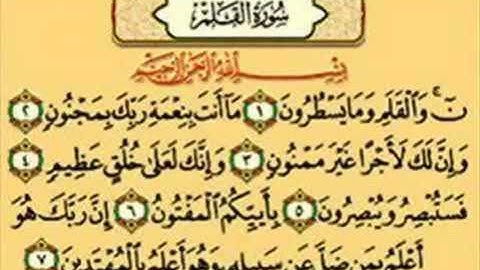 سُورَةُ القَلَمِ
بِسْمِ اللَّهِ الرَّحْمَٰنِ الرَّحِيمِ
نٓ ۚ وَالْقَلَمِ وَمَا يَسْطُرُونَ ١ مَا أَنتَ بِنِعْمَةِ رَبِّكَ بِمَجْنُونٍ ٢
وَإِنَّ لَكَ لَأَجْرًا غَيْرَ مَمْنُونٍ ٣ وَإِنَّكَ لَعَلَىٰ خُلُقٍ عَظِيمٍ ٤
فَسَتُبْصِرُ وَيُبْصِرُونَ ٥ بِأَييِّكُمُ الْمَفْتُونُ ٦ إِنَّ رَبَّكَ هُوَ
أَعْلَمُ بِمَن ضَلَّ عَن سَبِيلِهِ وَهُوَ أَعْلَمُ بِالْمُهْتَدِينَ ٧